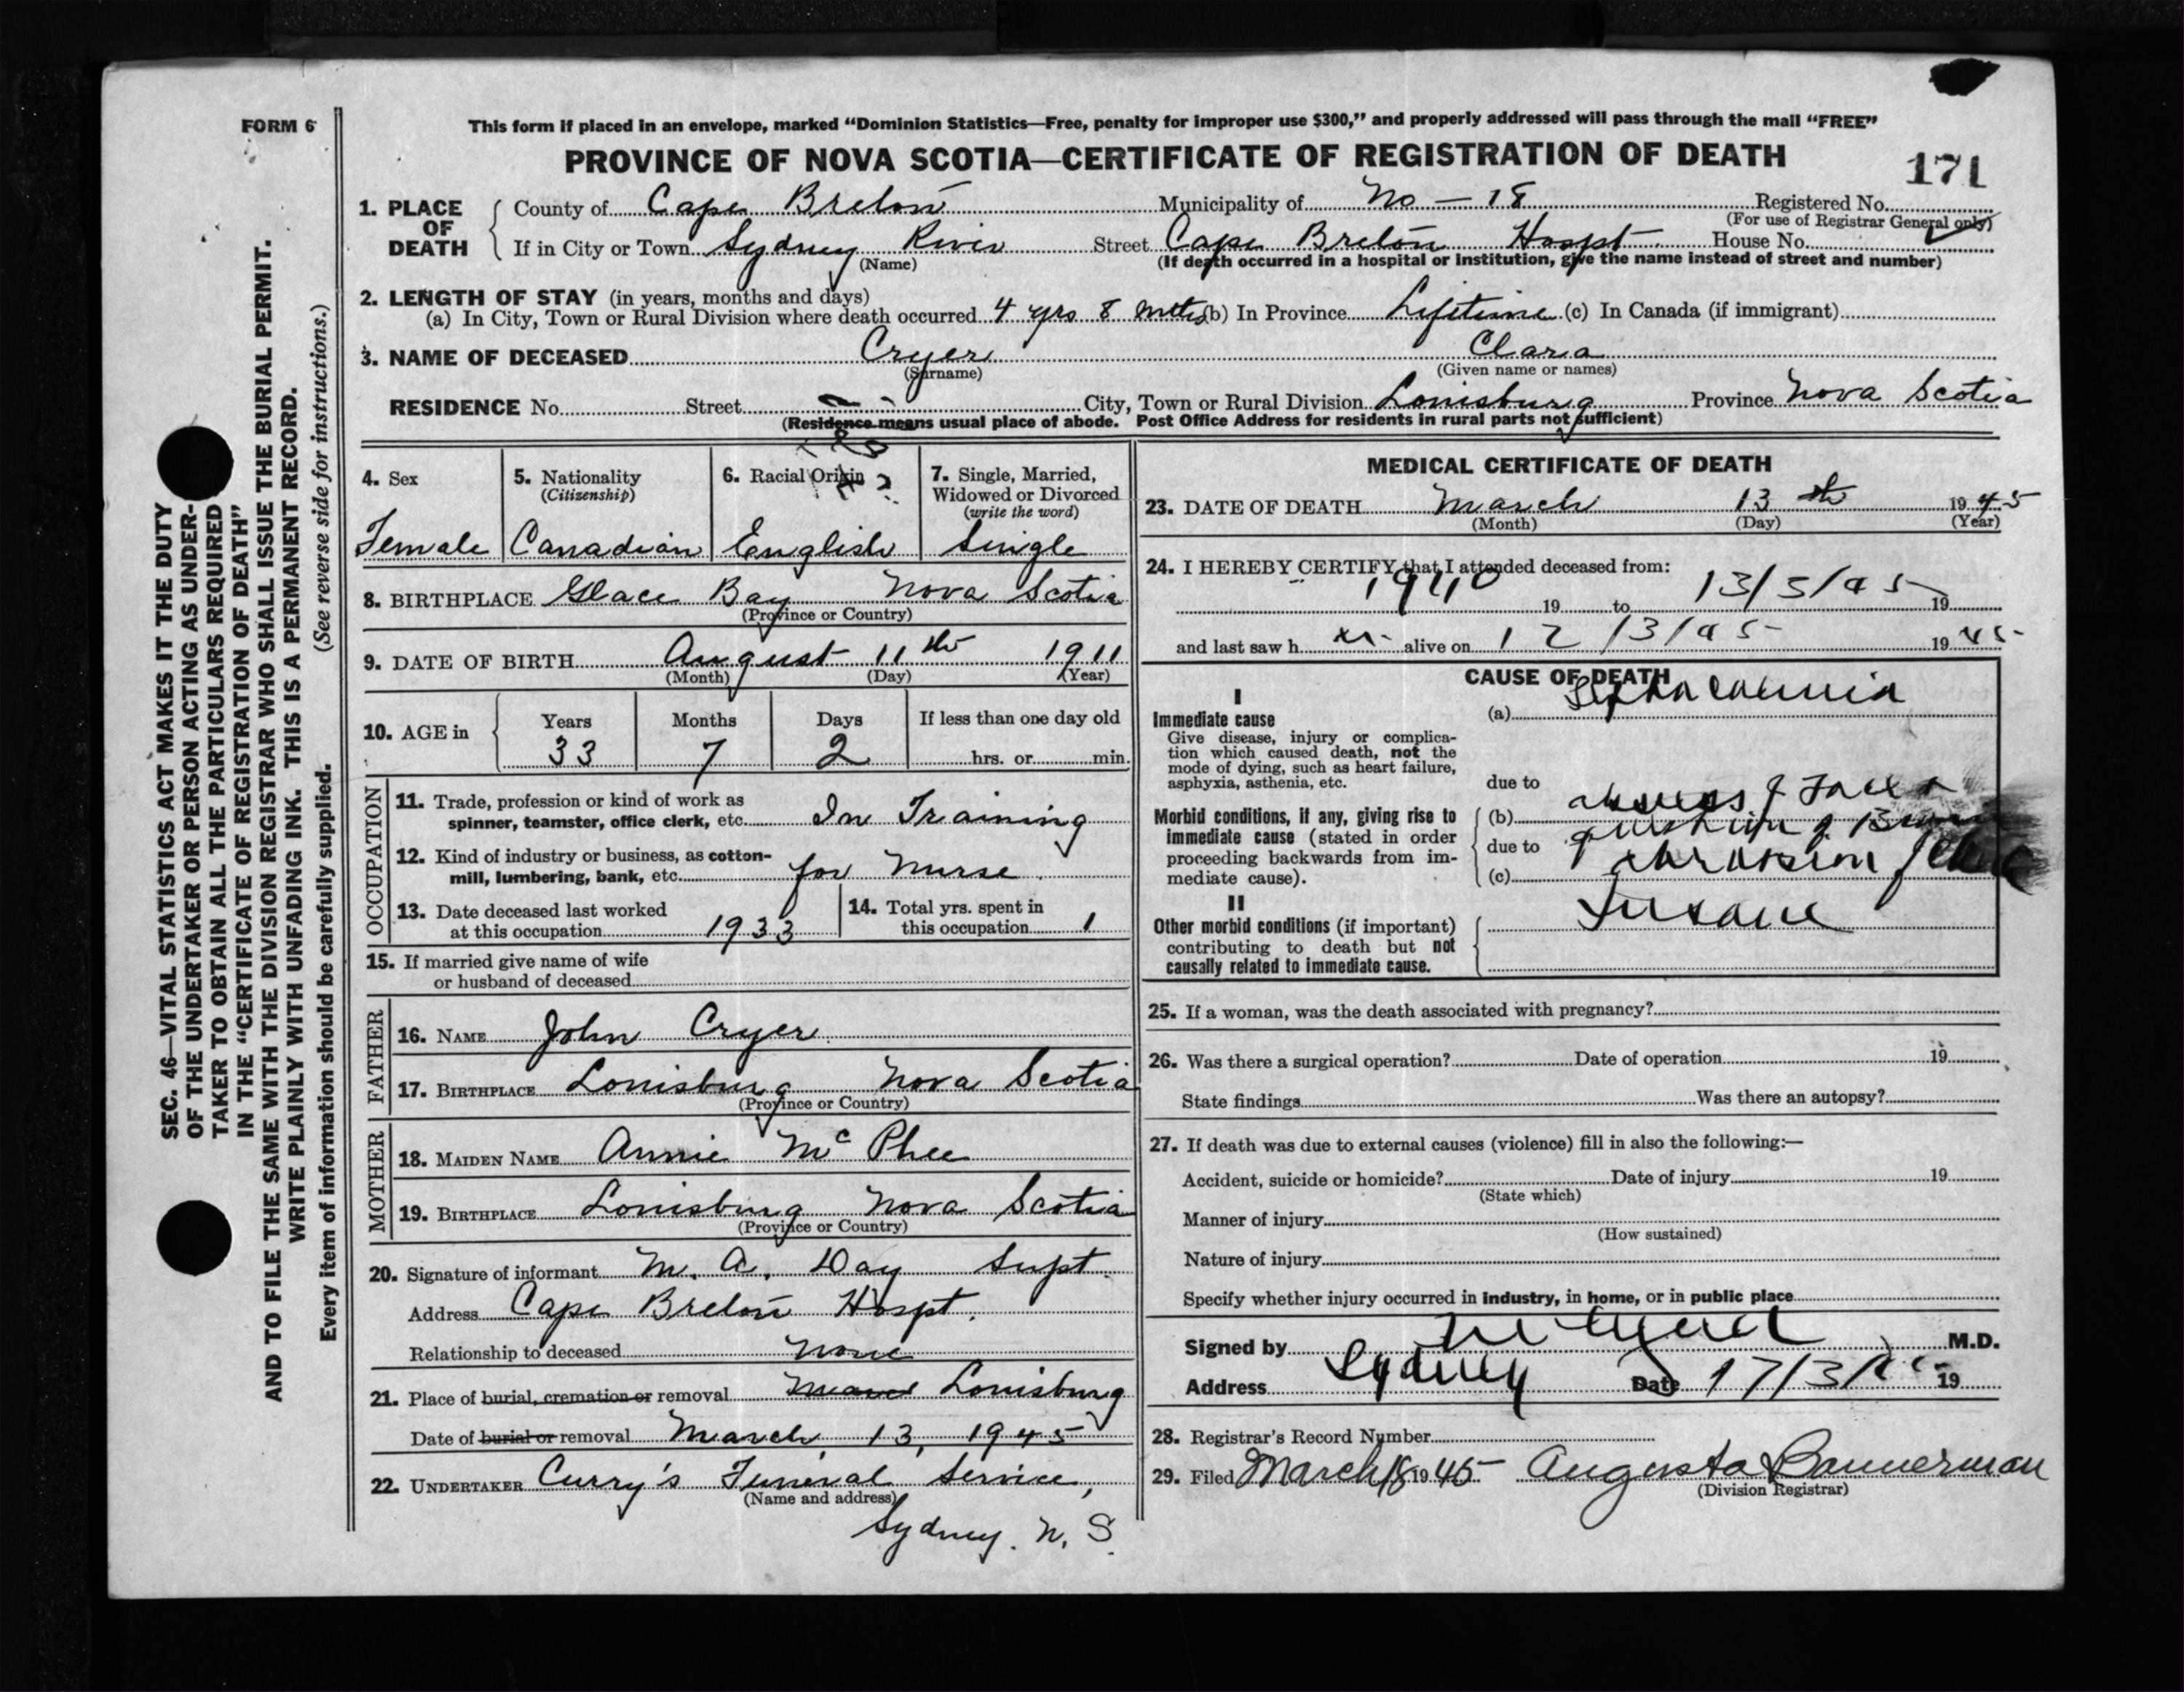 FORM 6
This form if placed in an envelope, marked “Dominion Statistics—Free, penalty for improper use $300,” and properly addressed will pass through the mail “FREE”
PROVINCE OF NOVA SCOTIA—CERTIFICATE OF REGISTRATION OF DEATH
171
1. PLACE OF DEATH
County of Cape Breton Municipality of No – 18 Registered No.
(For use of Registrar General only)
If in City or Town Sydney River Street Cape Breton Hospt. House No.
(Name) (If death occurred in a hospital or institution, give the name instead of street and number)
2. LENGTH OF STAY (in years, months and days)
(a) In City, Town or Rural Division where death occurred 4 yrs 8 mths (b) In Province Lifetime (c) In Canada (if immigrant)
3. NAME OF DECEASED Cryer Clara
(Surname) (Given name or names)
RESIDENCE No. Street City, Town or Rural Division Louisburg Province Nova Scotia
(Residence means usual place of abode. Post Office Address for residents in rural parts not sufficient)
4. Sex
Female
5. Nationality
(Citizenship)
Canadian
6. Racial Origin
English
7. Single, Married,
Widowed or Divorced
(write the word)
Single
8. BIRTHPLACE Glace Bay Nova Scotia
(Province or Country)
9. DATE OF BIRTH August 11th 1911
(Month) (Day) (Year)
10. AGE in Years Months Days If less than one day old
33 7 2 hrs. or min.
OCCUPATION
11. Trade, profession or kind of work as
spinner, teamster, office clerk, etc. In Training
12. Kind of industry or business, as cotton-
mill, lumbering, bank, etc. for nurse
13. Date deceased last worked
at this occupation 1933
14. Total yrs. spent in
this occupation 1
15. If married give name of wife
or husband of deceased
FATHER
16. NAME John Cryer
17. BIRTHPLACE Louisburg Nova Scotia
(Province or Country)
MOTHER
18. MAIDEN NAME Annie McPhee
19. BIRTHPLACE Louisburg Nova Scotia
(Province or Country)
20. Signature of informant M. A. Day Supt.
Address Cape Breton Hospt.
Relationship to deceased none
21. Place of burial, cremation or removal Louisburg
Date of burial or removal March 13, 1945
22. UNDERTAKER Curry's Funeral Service,
(Name and address)
Sydney. N. S.
MEDICAL CERTIFICATE OF DEATH
23. DATE OF DEATH March 13th 1945
(Month) (Day) (Year)
24. I HEREBY CERTIFY that I attended deceased from:
1940 19 to 13/3/45 19
and last saw h er alive on 12/3/45 1945
CAUSE OF DEATH
I
Immediate cause
Give disease, injury or complica-
tion which caused death, not the
mode of dying, such as heart failure,
asphyxia, asthenia, etc.
(a)
due to
Morbid conditions, if any, giving rise to
immediate cause (stated in order
proceeding backwards from im-
mediate cause).
(b) abscess of
due to
(c)
II
Other morbid conditions (if important)
contributing to death but not
causally related to immediate cause.
Insane
25. If a woman, was the death associated with pregnancy?
26. Was there a surgical operation? Date of operation 19
State findings Was there an autopsy?
27. If death was due to external causes (violence) fill in also the following:—
Accident, suicide or homicide? Date of injury 19
(State which)
Manner of injury
(How sustained)
Nature of injury
Specify whether injury occurred in industry, in home, or in public place
Signed by M.D.
Address Sydney Date 17/3/45 19
28. Registrar's Record Number
29. Filed March 18 1945 Augusta Bannerman
(Division Registrar)
SEC. 46—VITAL STATISTICS ACT MAKES IT THE DUTY
OF THE UNDERTAKER OR PERSON ACTING AS UNDER-
TAKER TO OBTAIN ALL THE PARTICULARS REQUIRED
IN THE “CERTIFICATE OF REGISTRATION OF DEATH”
AND TO FILE THE SAME WITH THE DIVISION REGISTRAR WHO SHALL ISSUE THE BURIAL PERMIT.
WRITE PLAINLY WITH UNFADING INK. THIS IS A PERMANENT RECORD.
Every item of information should be carefully supplied. (See reverse side for instructions.)